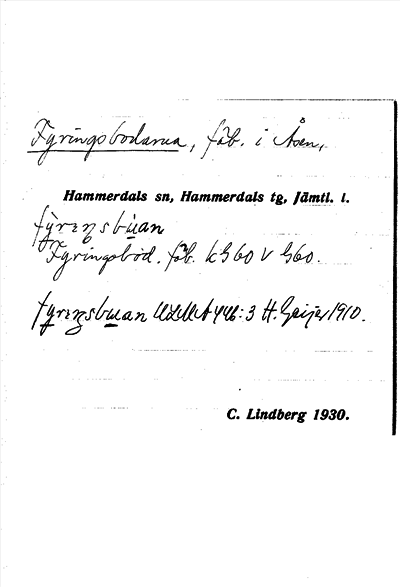 Fyringsbodarna, fäb. i Åsen,
Hammerdals sn, Hammerdals tg, Jämtl. l.
fy̆rıŋsbu̲an
Fyringsbod. fäb. k G60 V G60.
fyrıŋsbu̲an ULMA 446:3 H. Geijer 1910.
C. Lindberg 1930.